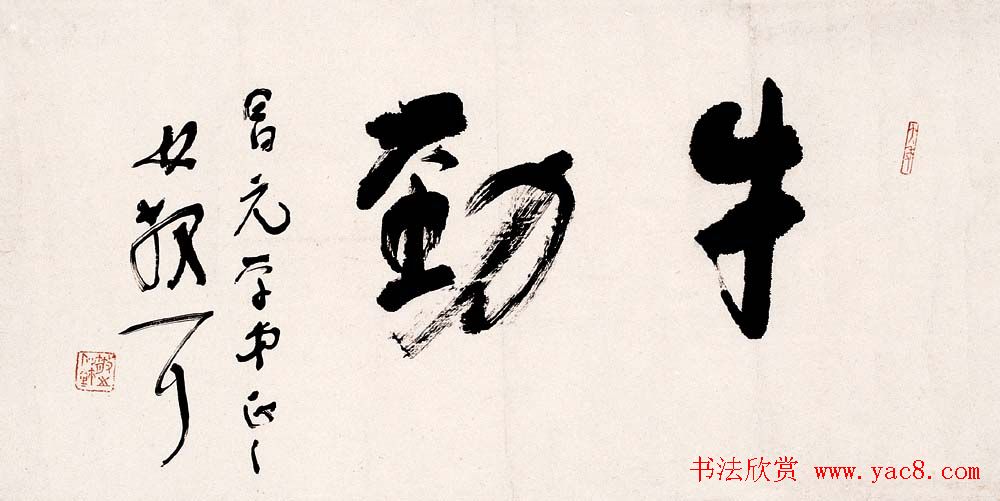 牛劲
昌元学弟正之
林散耳
书法欣赏 www.yac8.com